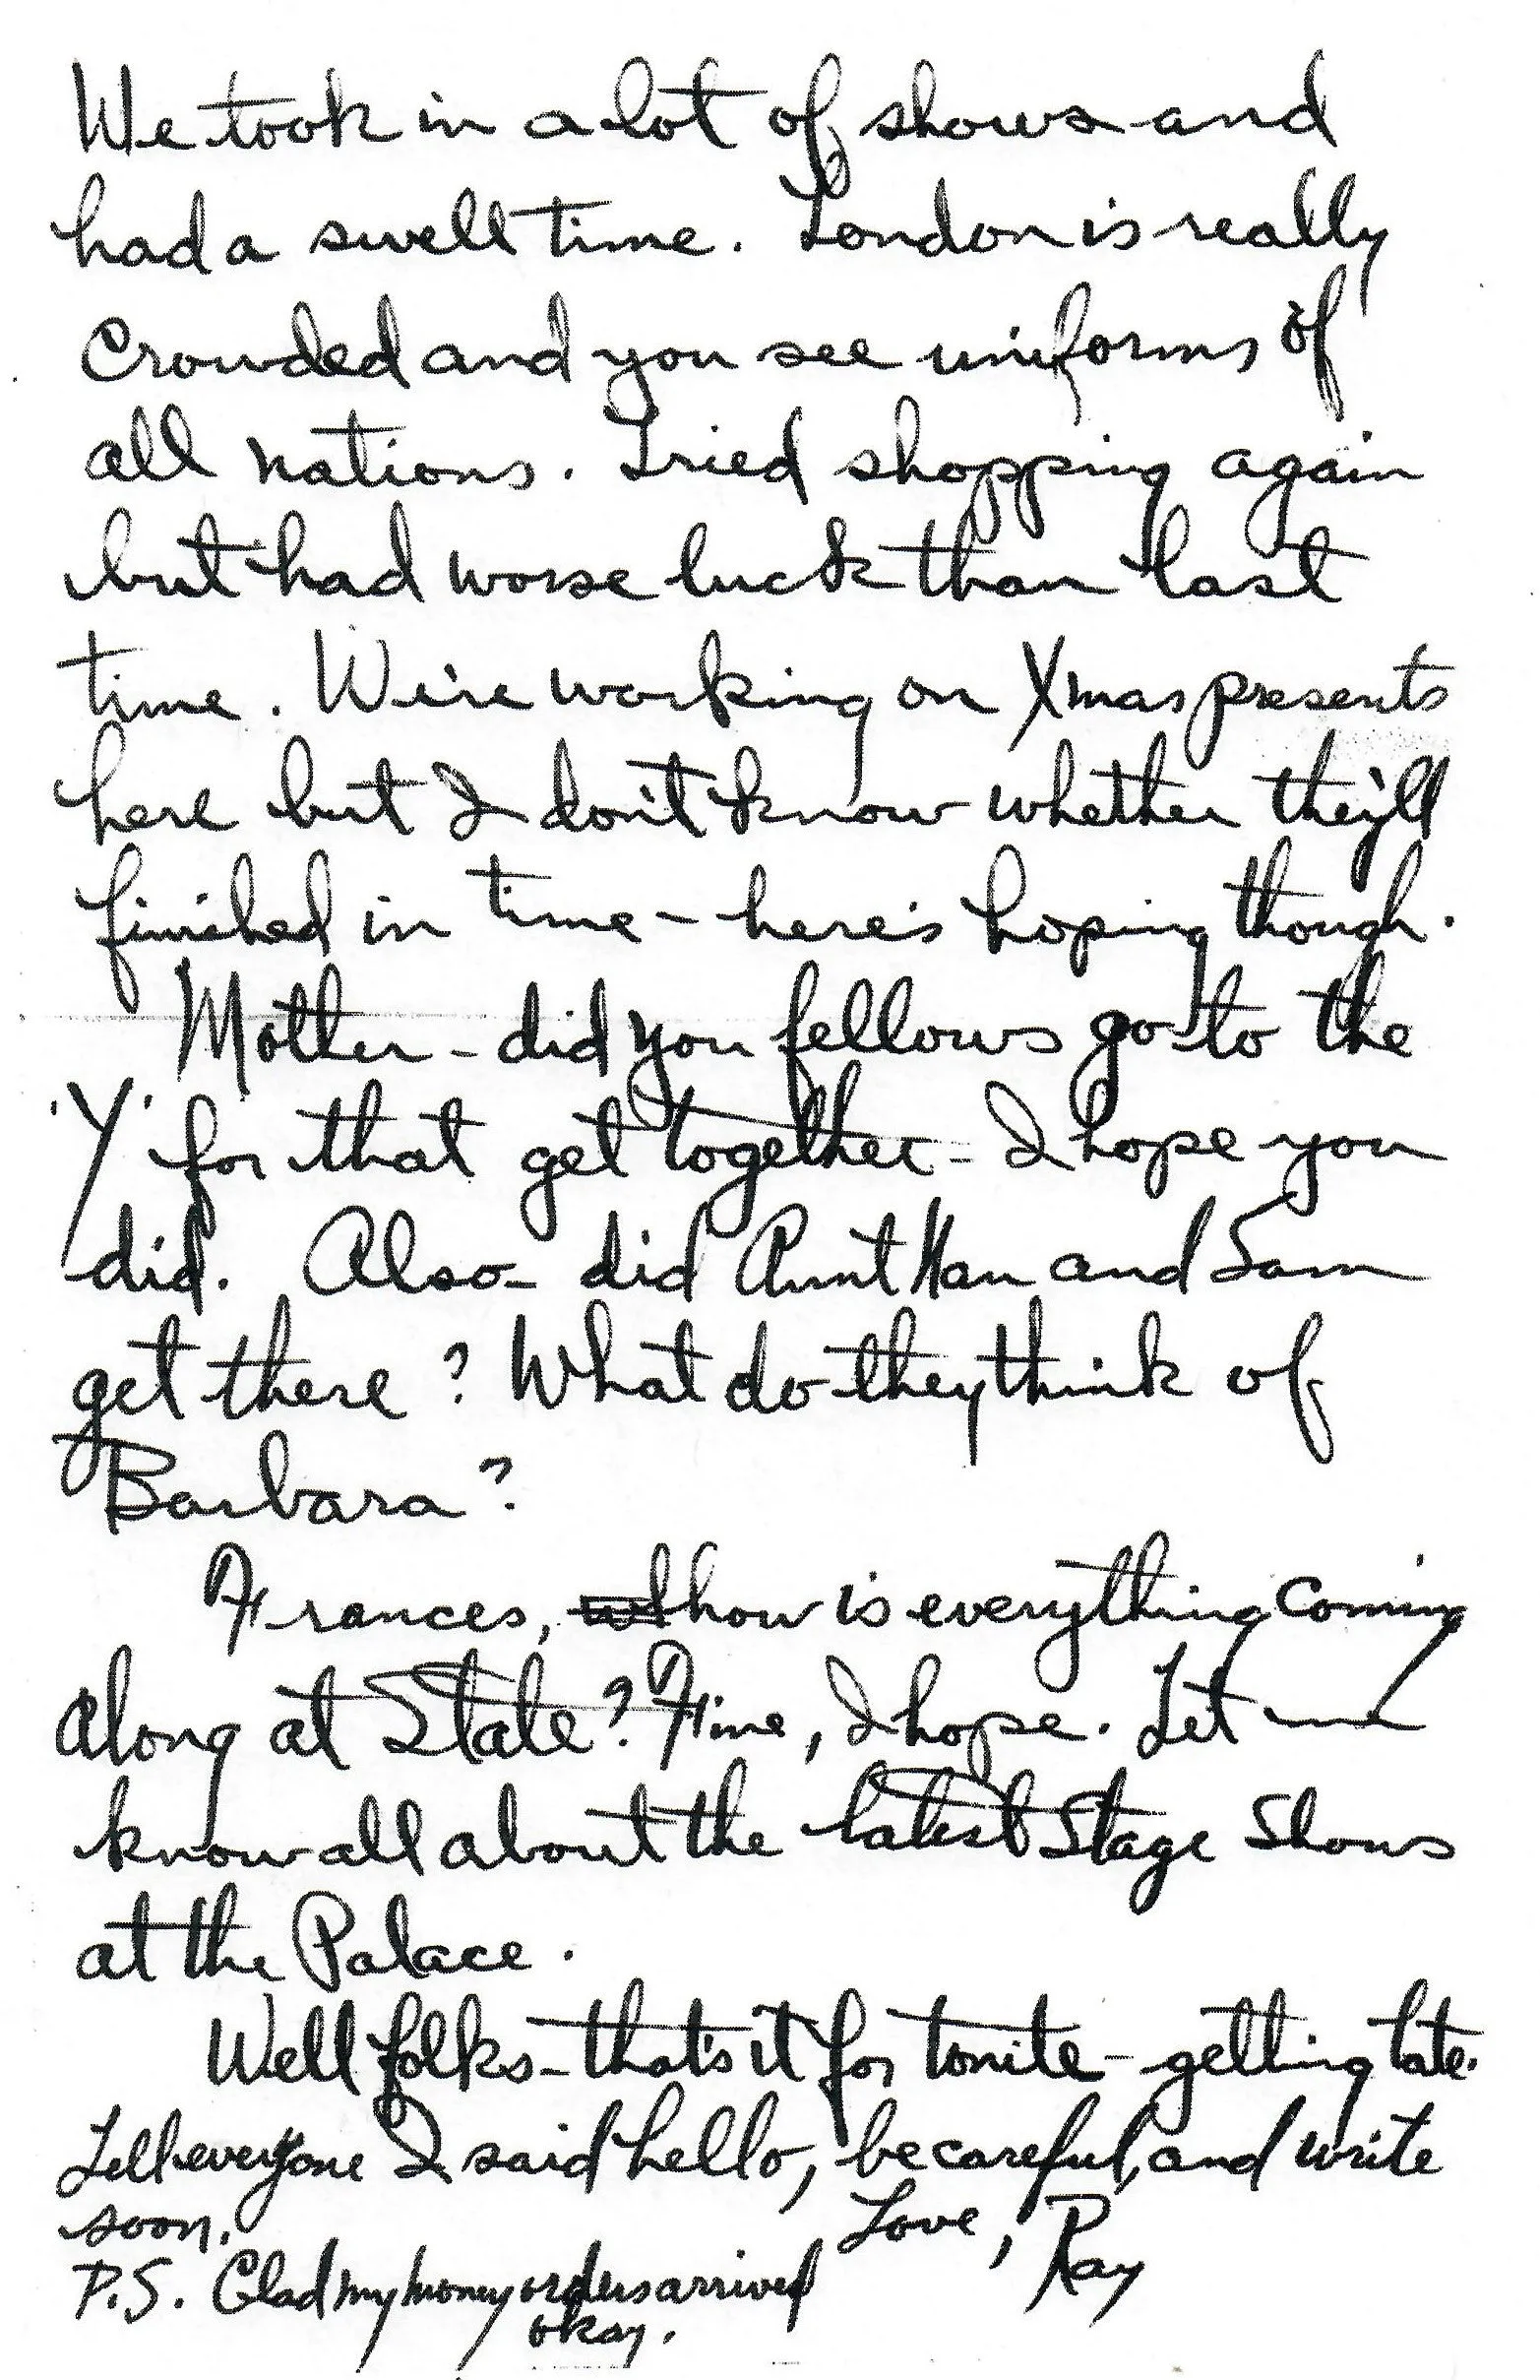 We took in a lot of shows and
had a swell time. London is really
Crowded and you see uniforms of
all nations. Tried shopping again
but had worse luck than last
time. We're working on Xmas presents
here but I don't know whether they'll
finished in time - here's hoping though.
Mother - did you fellows go to the
'Y' for that get together - I hope you
did. Also - did Aunt Han and Sam
get there? What do they think of
Barbara?
Frances, how is everything coming
along at State? Fine, I hope. Let me
know all about the latest Stage Shows
at the Palace.
Well folks - that's it for tonite - getting late.
Tell everyone I said hello, be careful, and write
soon.
Love, Ray
P.S. Glad my money orders arrived
okay.